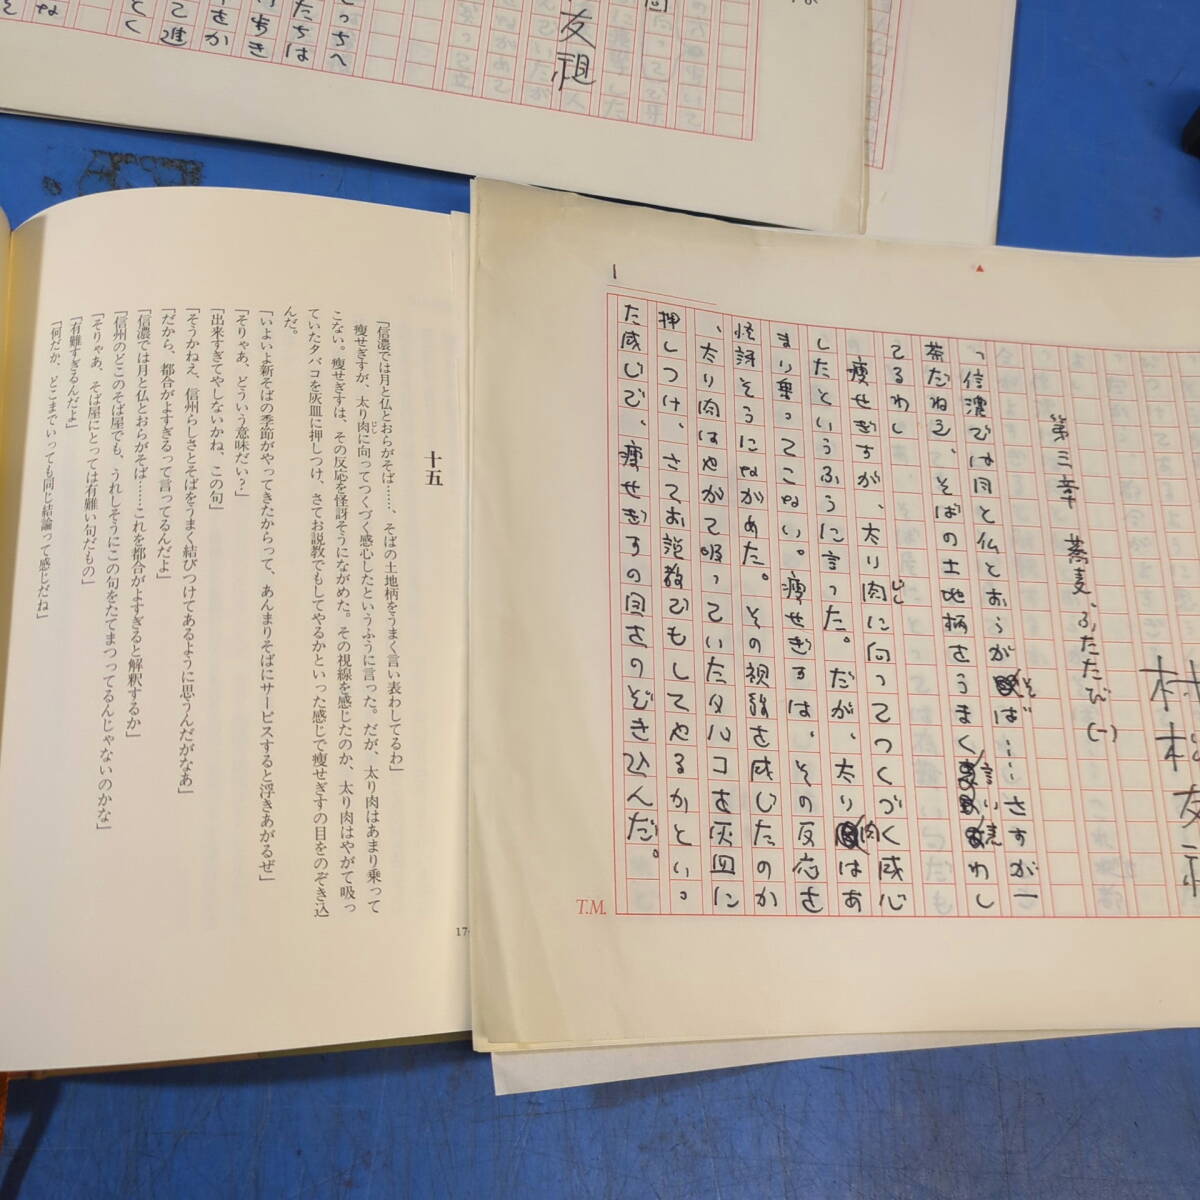 友祖
どっちへ
たちは
歩き
をか
て進
とく
1
村松友
第三章 蕎麦、ふたたび(一)
「信濃では月と仏とおらがそば……さすが一
茶だねえ、そばの土地柄をうまく言い
てるわ」
痩せぎすが、太り肉に向ってつくづく感心
じし
したというふうに言った。だが、太り肉はあ
まり乗ってこない。痩せぎすは、その反応を
怪訝そうにながめた。その視線を感じたのか
、太り肉はやがて吸っていたタバコを灰皿に
押しつけ、さてお説教でもしてやるかとい。
た感じで、痩せぎすの目をのぞき込んだ。
T.M.
十五
「信濃では月と仏とおらがそば……、そばの土地柄をうまく言い表わしてるわ」
痩せぎすが、太り肉に向ってつくづく感心したというふうに言った。だが、太り肉はあまり乗って
じし
こない。痩せぎすは、その反応を怪訝そうにながめた。その視線を感じたのか、太り肉はやがて吸っ
ていたタバコを灰皿に押しつけ、さてお説教でもしてやるかといった感じで痩せぎすの目をのぞき込
んだ。
「いよいよ新そばの季節がやってきたからって、あんまりそばにサービスすると浮きあがるぜ」
「そりゃあ、どういう意味だい?」
「出来すぎてやしないかね、この句」
「そうかねえ、信州らしさとそばをうまく結びつけてあるように思うんだがなあ」
「だから、都合がよすぎるって言ってるんだよ」
「信濃では月と仏とおらがそば……これを都合がよすぎると解釈するか」
「信州のどこのそば屋でも、うれしそうにこの句をたてまつってるんじゃないのかな」
「そりゃあ、そば屋にとっては有難い句だもの」
「有難すぎるんだよ」
「何だか、どこまでいっても同じ結論って感じだね」
17